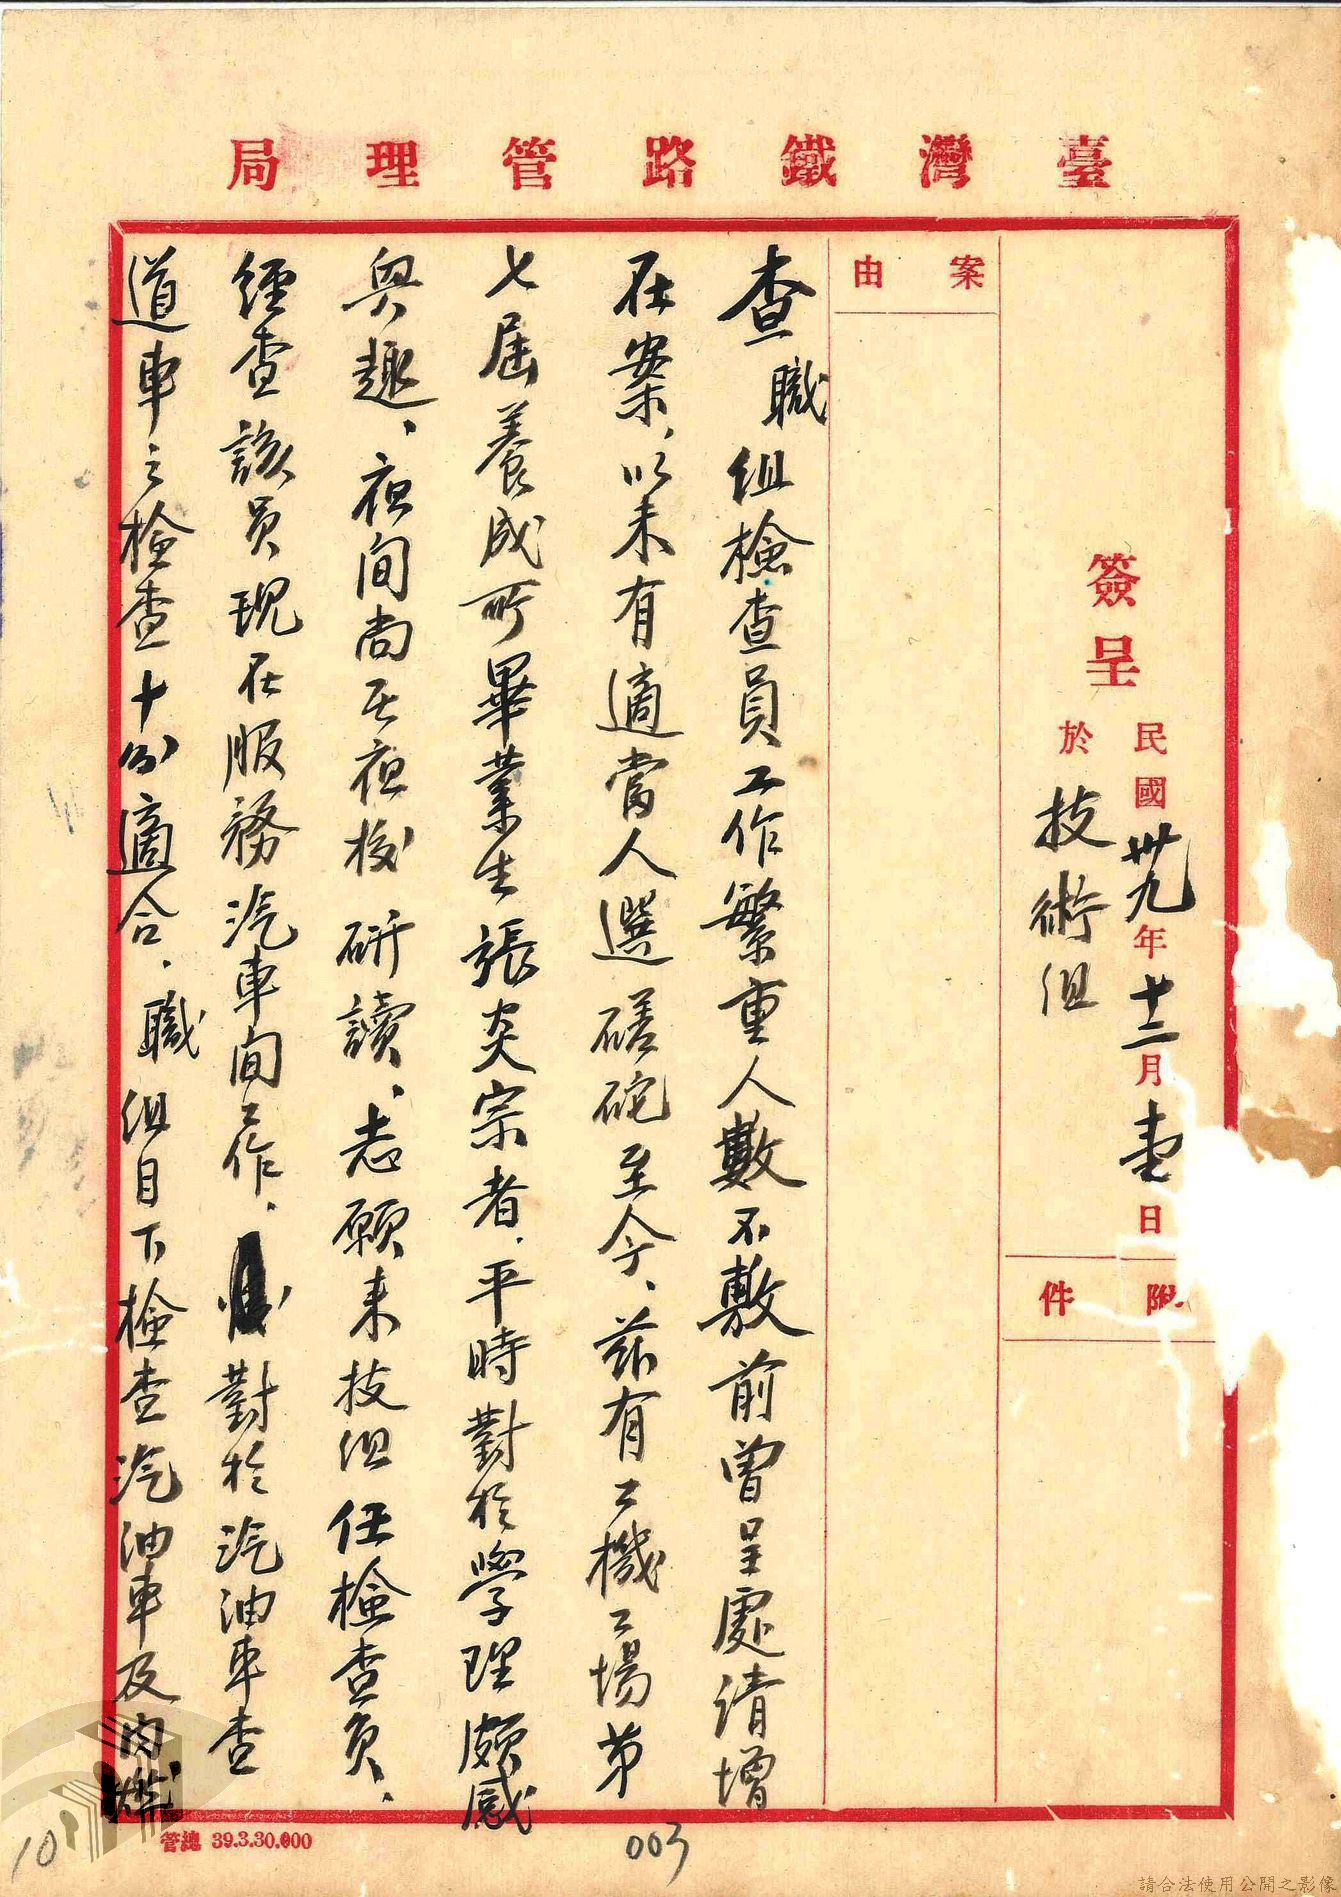 臺灣鐵路管理局
簽呈
民國卅九年十二月壹日
於技術組
附件
案由
查職組檢查員工作繁重人數不敷前曾呈處請增
在案、以未有適當人選磋砣至今、茲有工機工場第
七屆養成所畢業生張炎宗者、平時對於學理頗感
興趣、夜間尚在夜校研讀、志願來技組任檢查員、
經查該員現在服務汽車間工作、對於汽油車查
道車之檢查十份適合、職組目下檢查汽油車及內燃
管總 39.3.30.000
003
10
請合法使用公開之影像